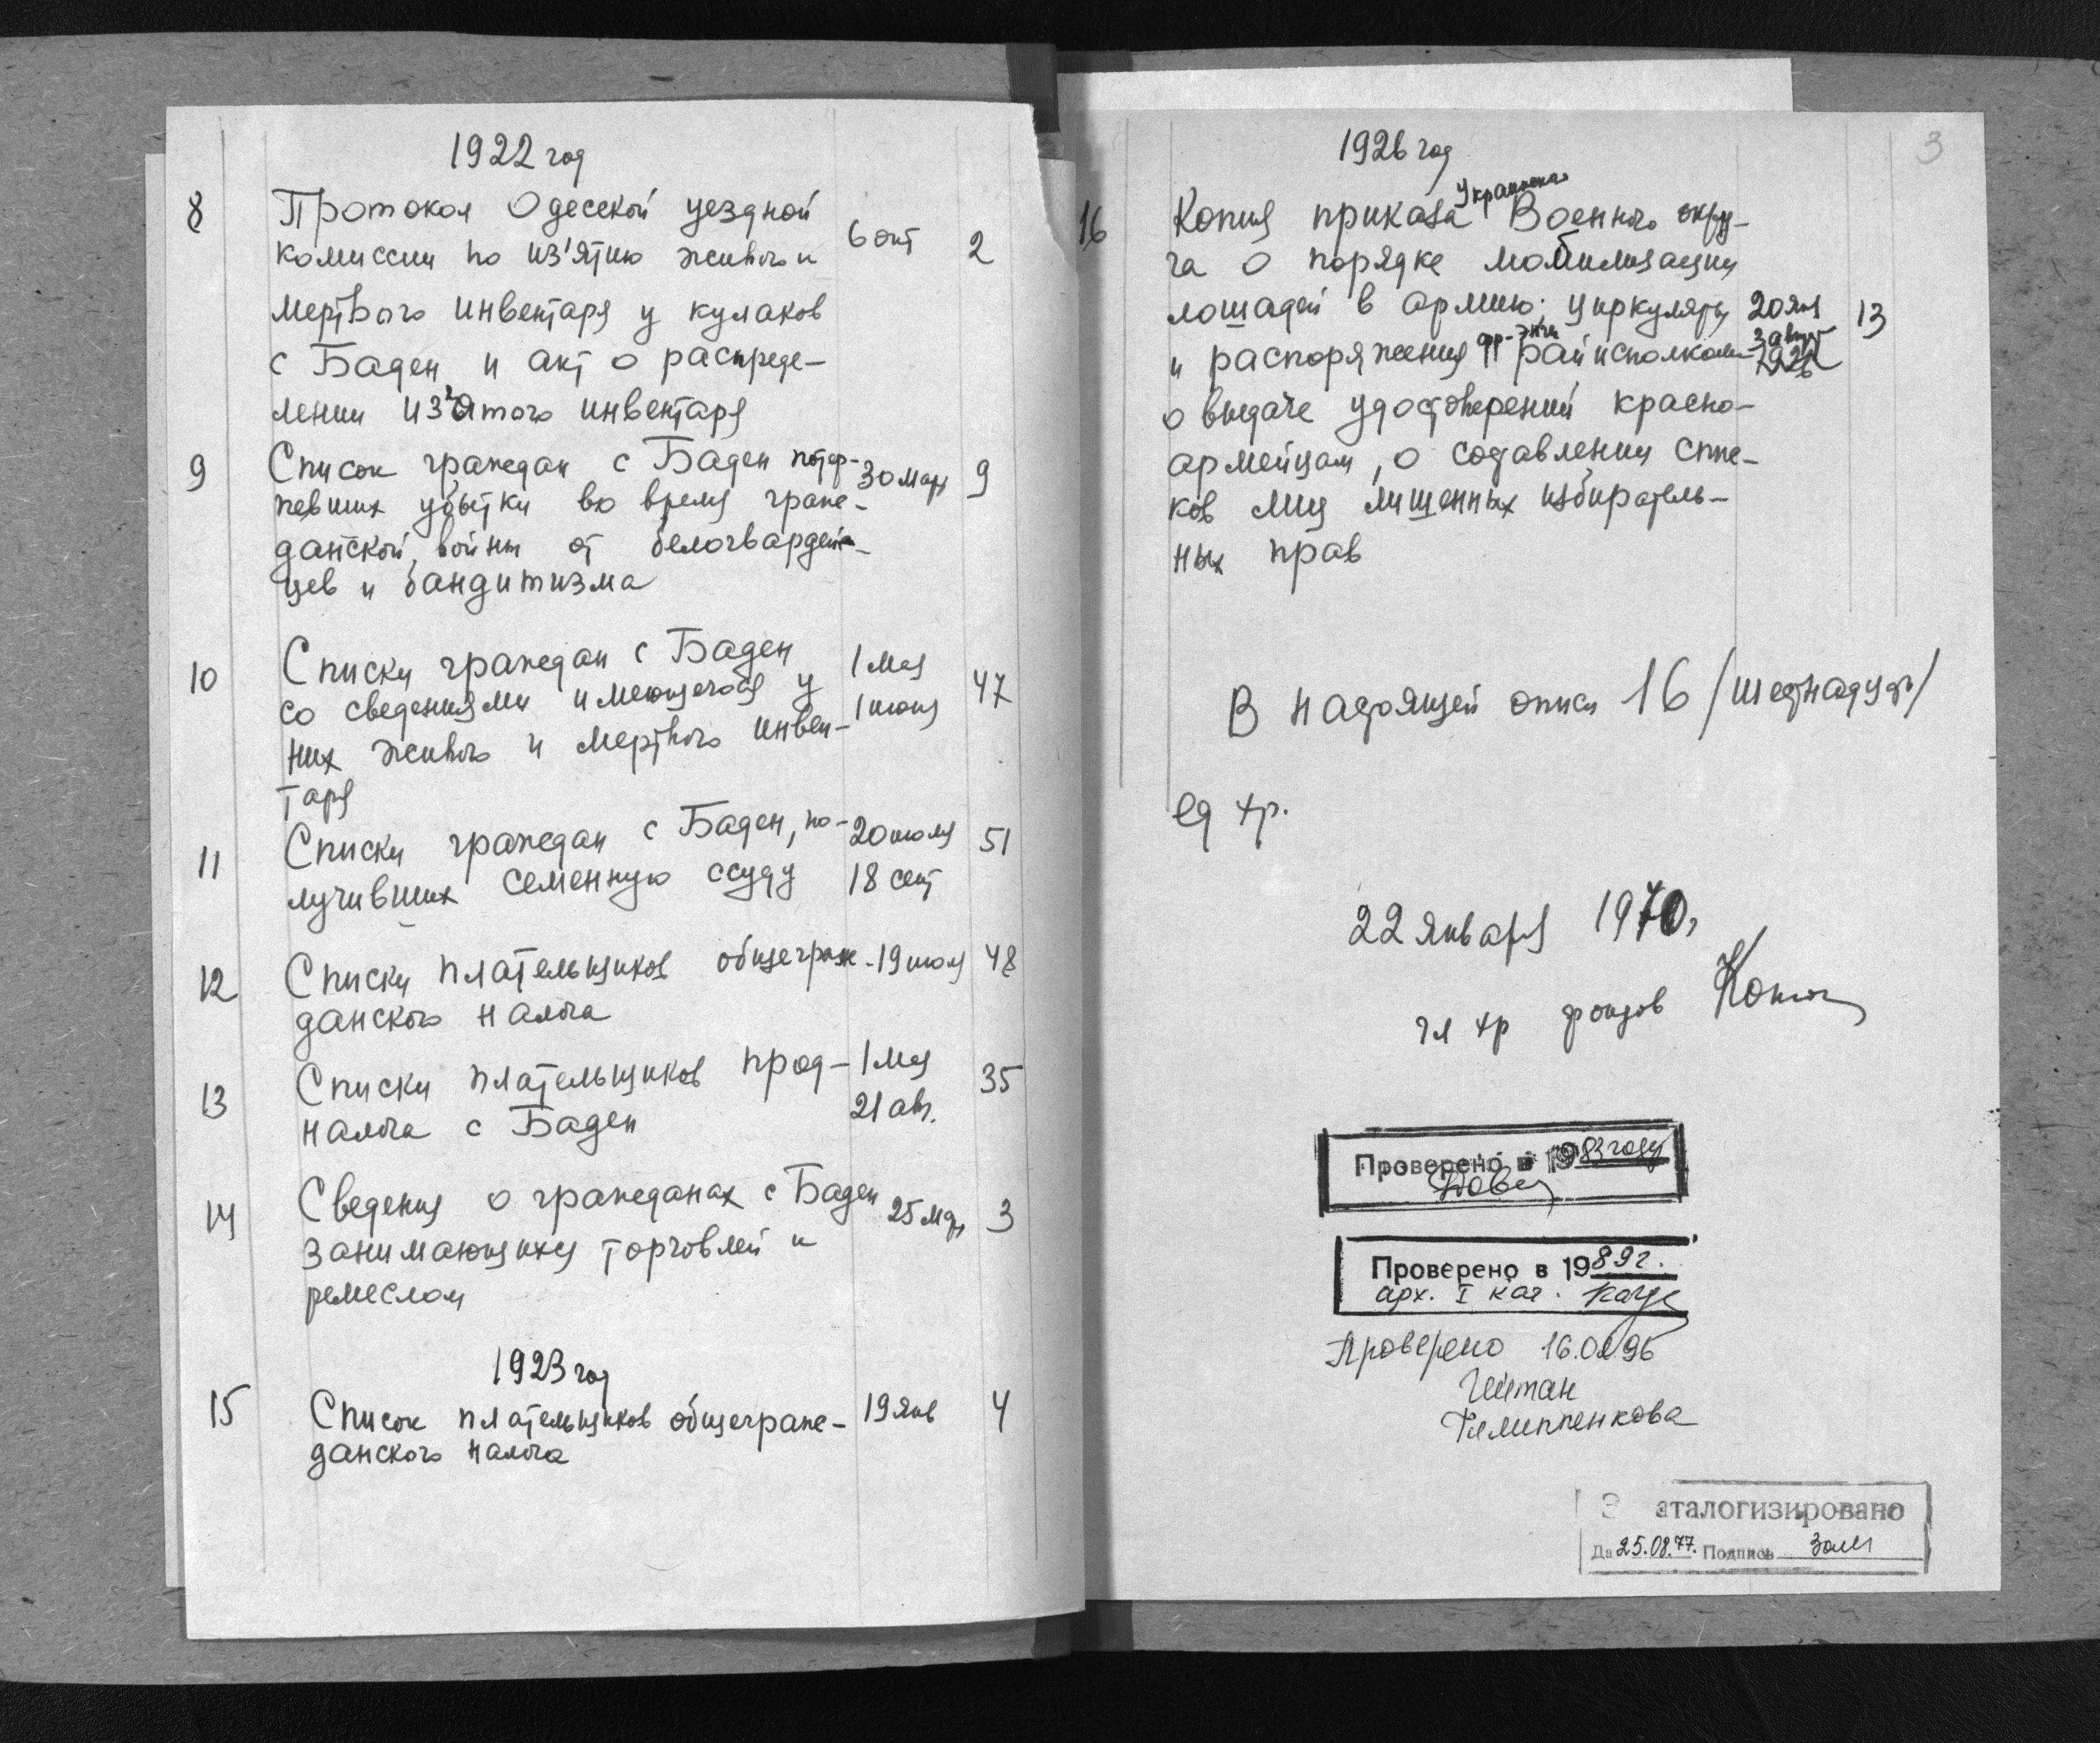 1922 год
8 Протокол Одесской уездной
комиссии по из'ятию живого и 6 окт 2
мертвого инвентаря у кулаков
с Баден и акт о распреде-
лении из'ятого инвентаря
9 Список граждан с Баден потер- 30 мар 9
певших убытки во время граж-
данской войны от белогвардей-
цев и бандитизма
10 Списки граждан с Баден 1 мая
со сведениями имеющегося у 1 июня 47
них живого и мертвого инвен-
таря
11 Списки граждан с Баден, по- 20 июля 51
лучивших семенную ссуду 18 сент
12 Списки плательщиков общеграж- 19 июля 48
данского налога
13 Списки плательщиков прод- 1 мая 35
налога с Баден 21 авг.
14 Сведения о гражданах с Баден 25 мар 3
занимающихся торговлей и
ремеслом
1923 год
15 Список плательщиков общеграж- 19 янв 4
данского налога
3
1926 год
16 Копия приказа Украинского Военного окру-
га о порядке мобилизации
лошадей в армию; циркуляры 20 янв 13
и распоряжения райисполкома 3 август 1926
о выдаче удостоверений красно-
армейцам, о составлении спис-
ков лиц лишенных избиратель-
ных прав
В настоящей описи 16 /шестнадцать/
ед хр.
22 января 1970г
гл хр фондов
Проверено в 1983 году
Проверено в 1989 г.
арх. I кат.
Проверено 16.02.96
Гейтан
Филиппенкова
аталогизировано
Да 25.08.77. Подпись